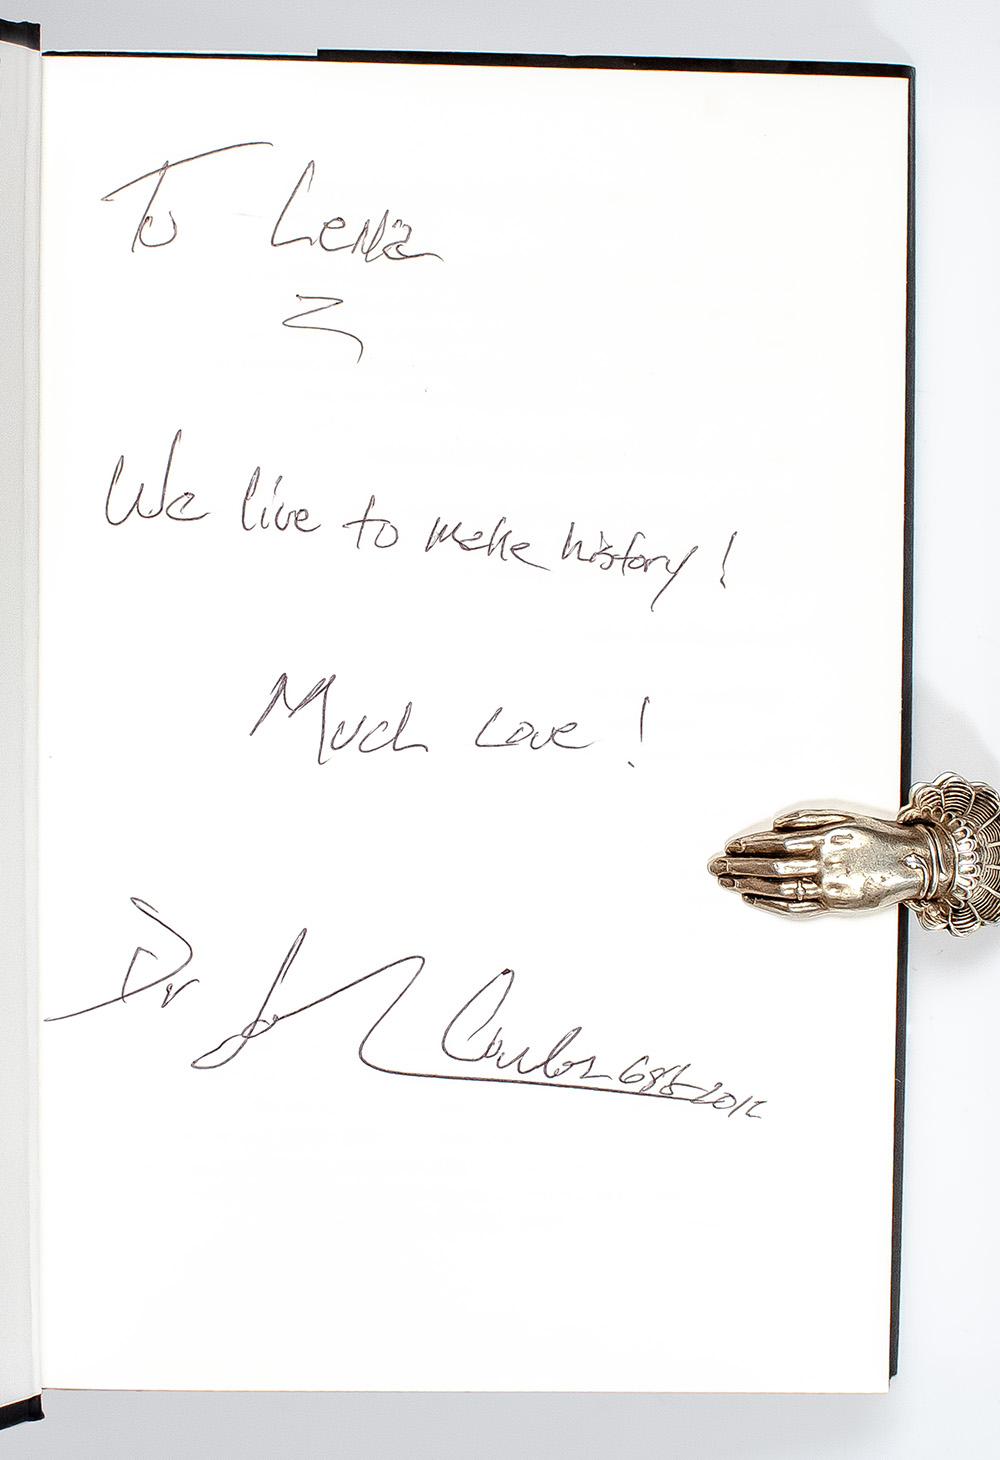 To Lena
We live to make history!
Much Love!
Dr John Carlos 68 2012